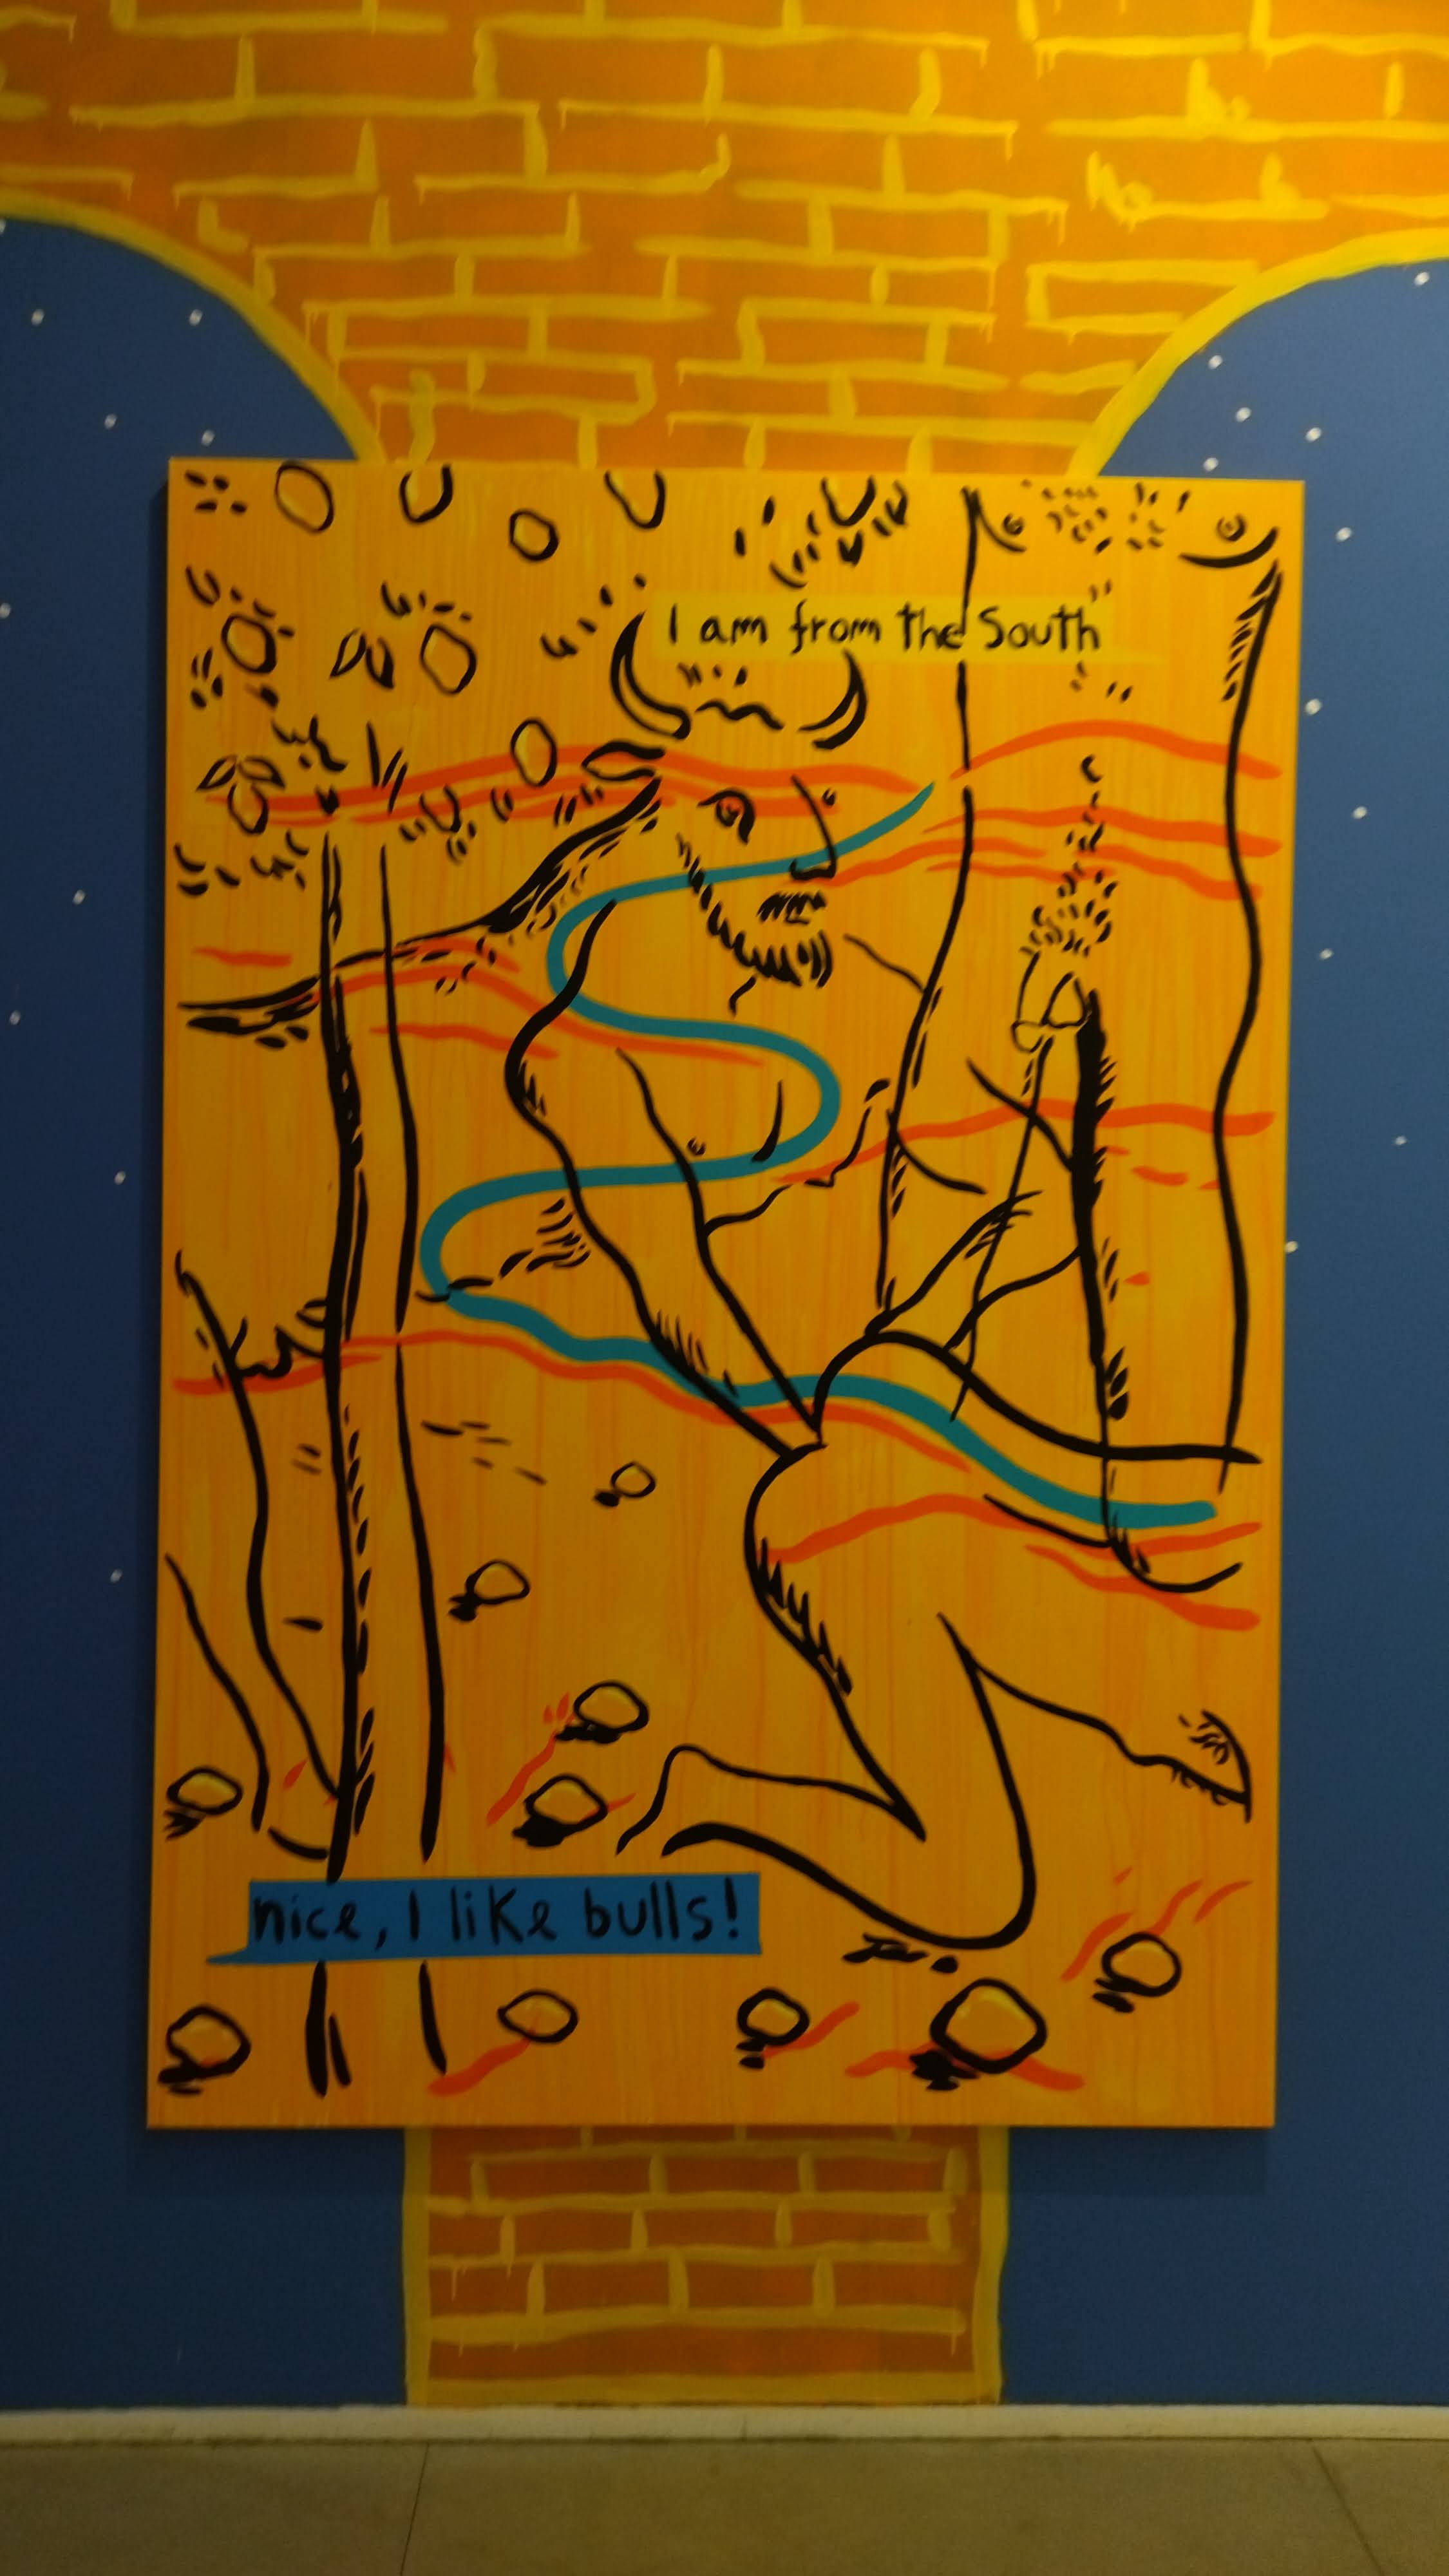 I am from the South
nice, I like bulls!